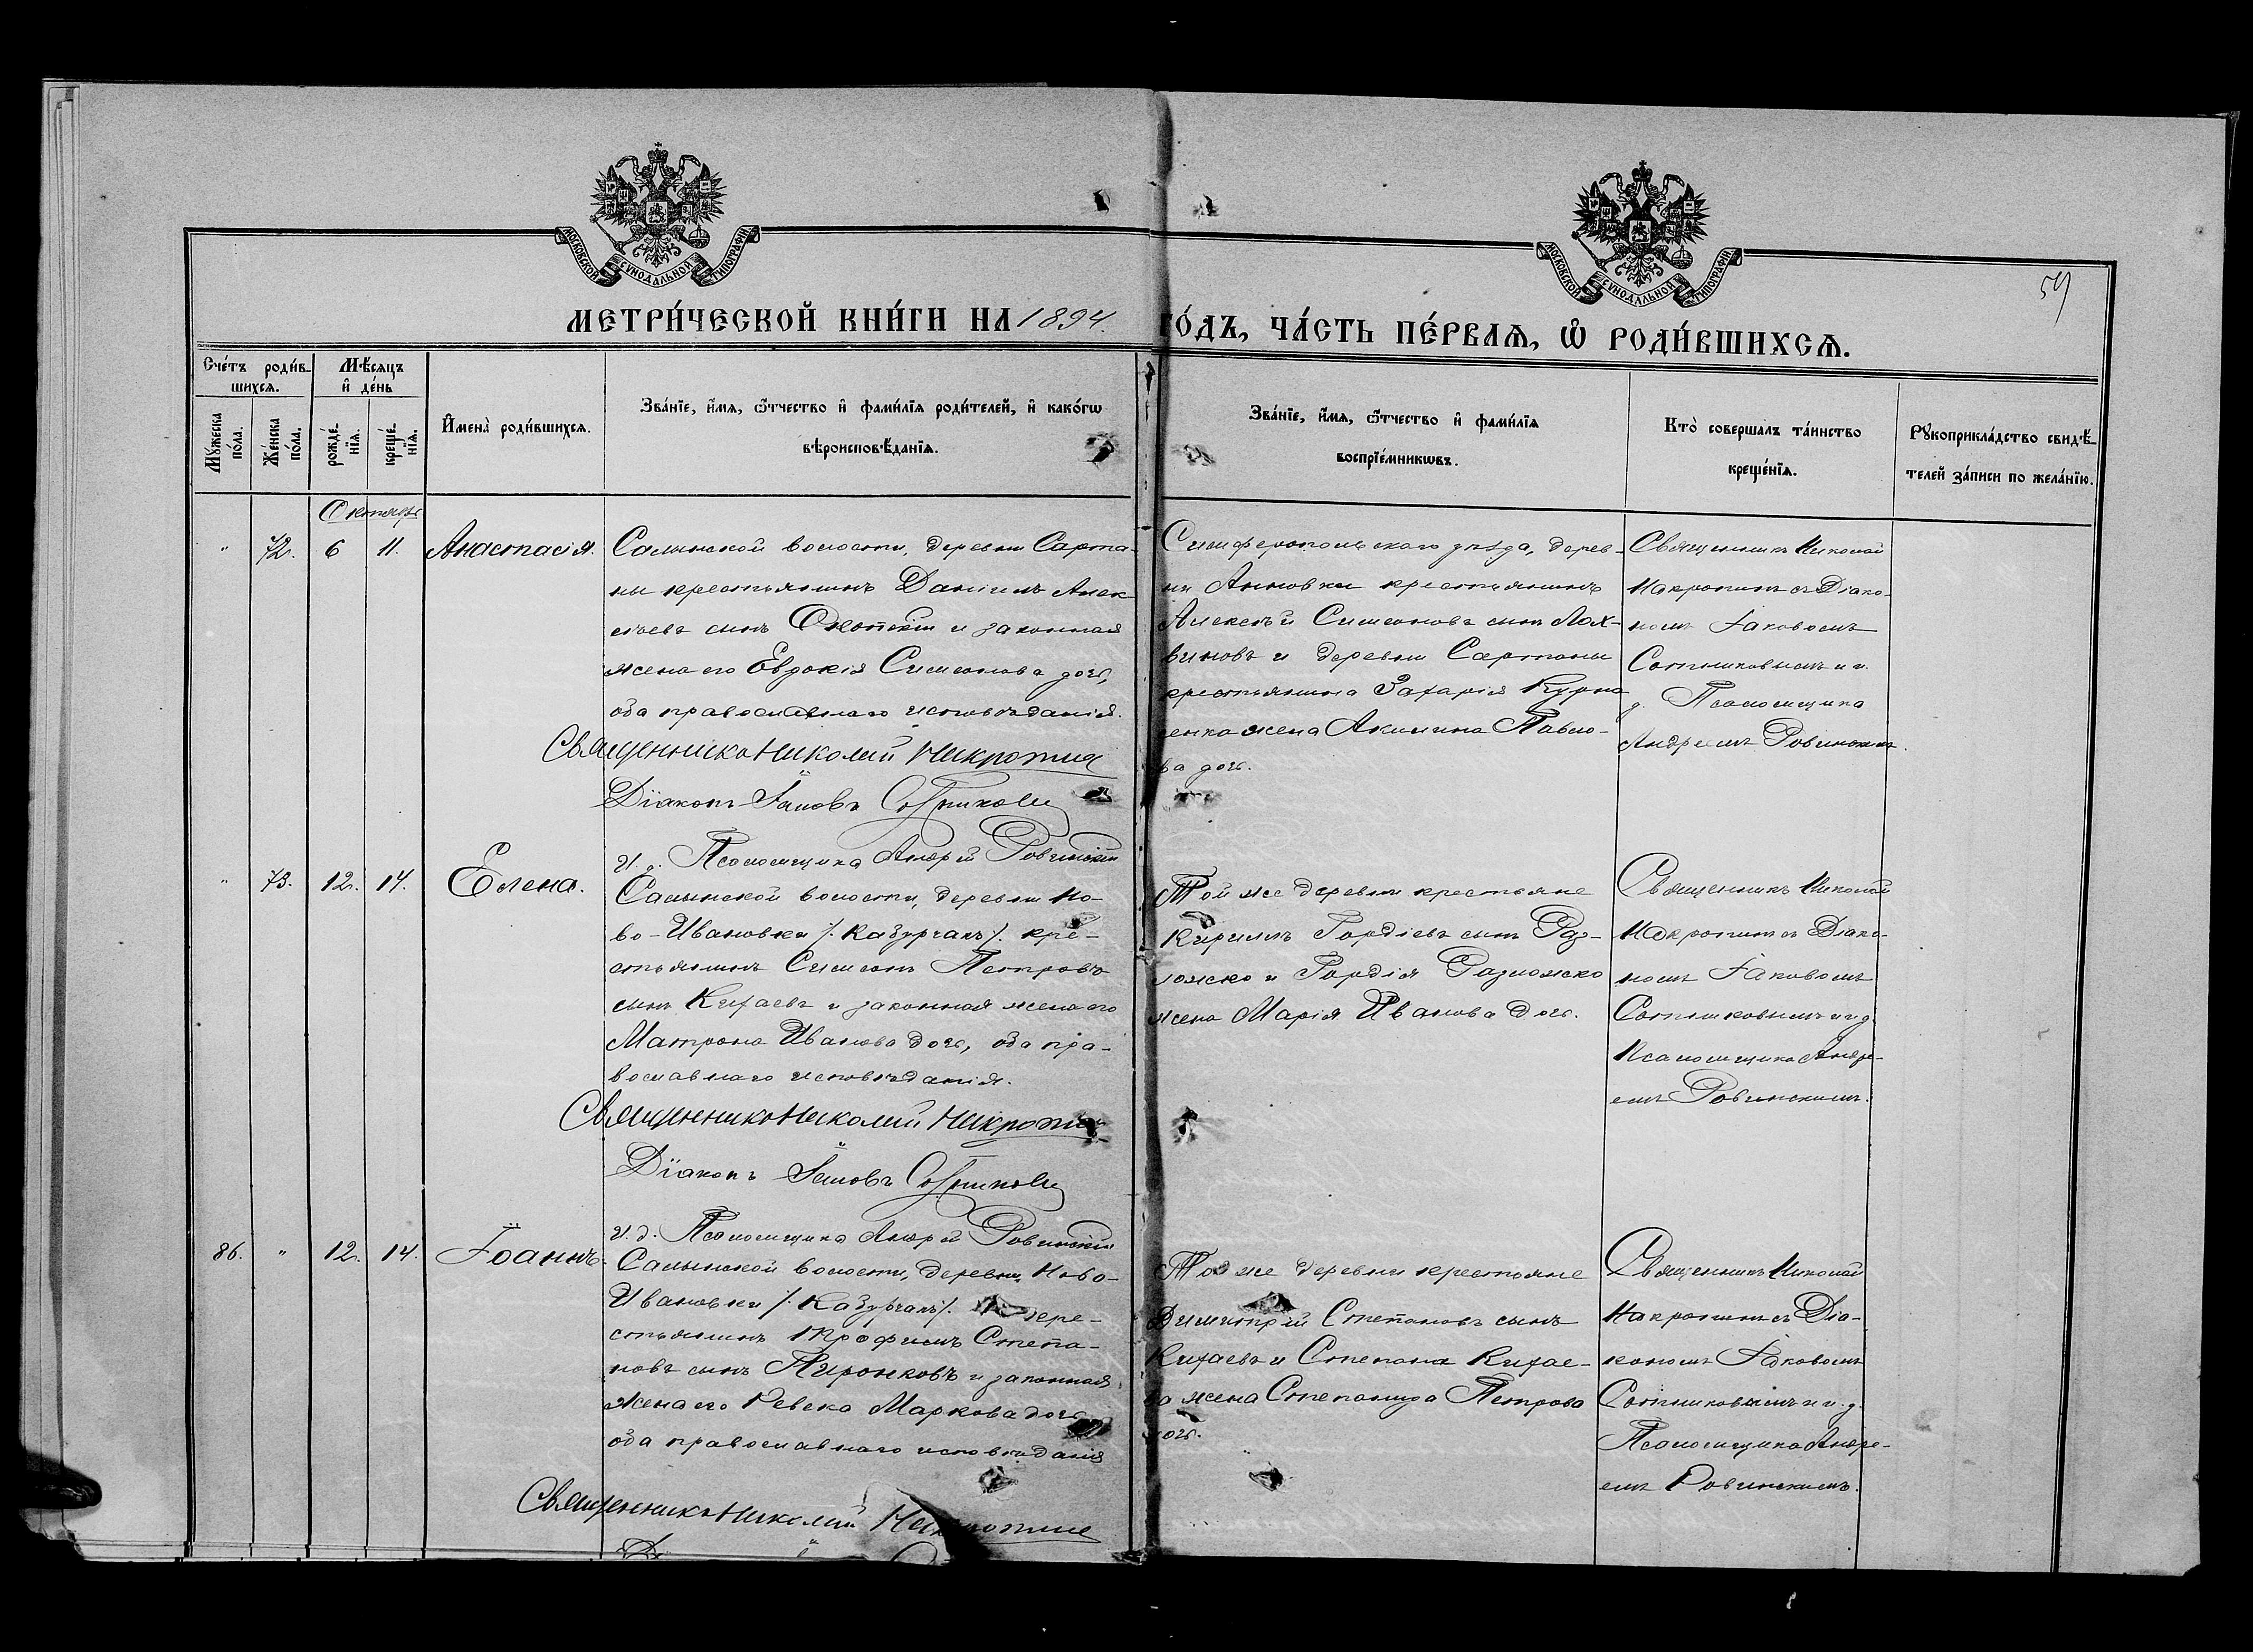 МОСКОВСКОЙ СѴНОДАЛЬНОЙ ТИПОГРАФІИ
МОСКОВСКОЙ СѴНОДАЛЬНОЙ ТИПОГРАФІИ
МЕТРИ́ЧЕСКОЙ КНИ́ГИ НА 1894. ГО́ДЪ, ЧА́СТЬ ПЕ́РВАѦ, Ѡ҆ РОДИ́ВШИХСѦ.
Сче́тъ роди́в-
шихсѧ.
Мꙋжеска
по́ла.
Же́нска
по́ла.
Мѣ́сѧцъ
и҆ де́нь
рожде́-
нїѧ.
креще́-
нїѧ.
И҆мена̀ роди́вшихсѧ.
Зва́нїе, и҆́мѧ, ѻ҆́тчество и҆ фами́лїѧ роди́телей, и҆ како́гѡ
вѣроисповѣ́данїѧ.
Зва́нїе, и҆́мѧ, ѻ҆́тчество и҆ фами́лїѧ
воспрїе́мникѡвъ.
Кто̀ соверша́лъ та́инство
креще́нїѧ.
Рꙋкоприкла́дство свидѣ́-
телей за́писи по жела́нїю.
Октябрь
" 72. 6 11. Анастасія.
Салынской волости, деревни Сарта-
ны крестьянинъ Даніилъ Алек-
сѣевъ сынъ и законная
жена его Евдокія Симеонова дочь,
оба православнаго исповѣданія.
Священникъ Николай
Діаконъ Іаковъ Сотниковъ
И. д. Псаломщика Андрей Ровинскій
Симферопольскаго уѣзда, дерев-
ни Анновки крестьянинъ
Алексѣй Симеоновъ сынъ Лох-
виновъ и деревни Сартаны
крестьянина Захарія Курна-
енка жена Акилина Павло-
ва дочь.
Священникъ Николай
съ Діако-
номъ Іаковомъ
Сотниковымъ и и.
д. Псаломщика
Андреемъ Ровинскимъ.
" 73. 12. 14. Елена.
Салынской волости, деревни Но-
во-Ивановки /. Казурчакъ/. кре-
стьянинъ Симеонъ Петровъ
сынъ Китаевъ и законная жена его
Матрона Иванова дочь, оба пра-
вославнаго исповѣданія.
Священникъ Николай
Діаконъ Іаковъ Сотниковъ
И. д. Псаломщика Андрей Ровинскій
Той же деревни крестьяне
Кириллъ Гордіевъ сынъ Раз-
ложко и Гордія Разложко
жена Марія Иванова дочь.
Священникъ Николай
съ Діако-
номъ Іаковомъ
Сотниковымъ и и д.
Псаломщика Андре-
емъ Ровинскимъ.
86. " 12. 14. Іоаннъ.
Салынской волости, деревни Ново-
Ивановки /. Казурчакъ/. кре-
стьянинъ Трофимъ Степа-
новъ сынъ Пиронковъ и законная
жена его Ревека Маркова дочь
оба православнаго исповѣданія
Священникъ Николай
Той же деревни крестьяне
Димитрій Степановъ сынъ
Китаевъ и Степана Китае-
ва жена Степанида Петрова
дочь.
Священникъ Николай
съ Діа-
кономъ Іаковомъ
Сотниковымъ и и. д.
Псаломщика Андре-
емъ Ровинскимъ.